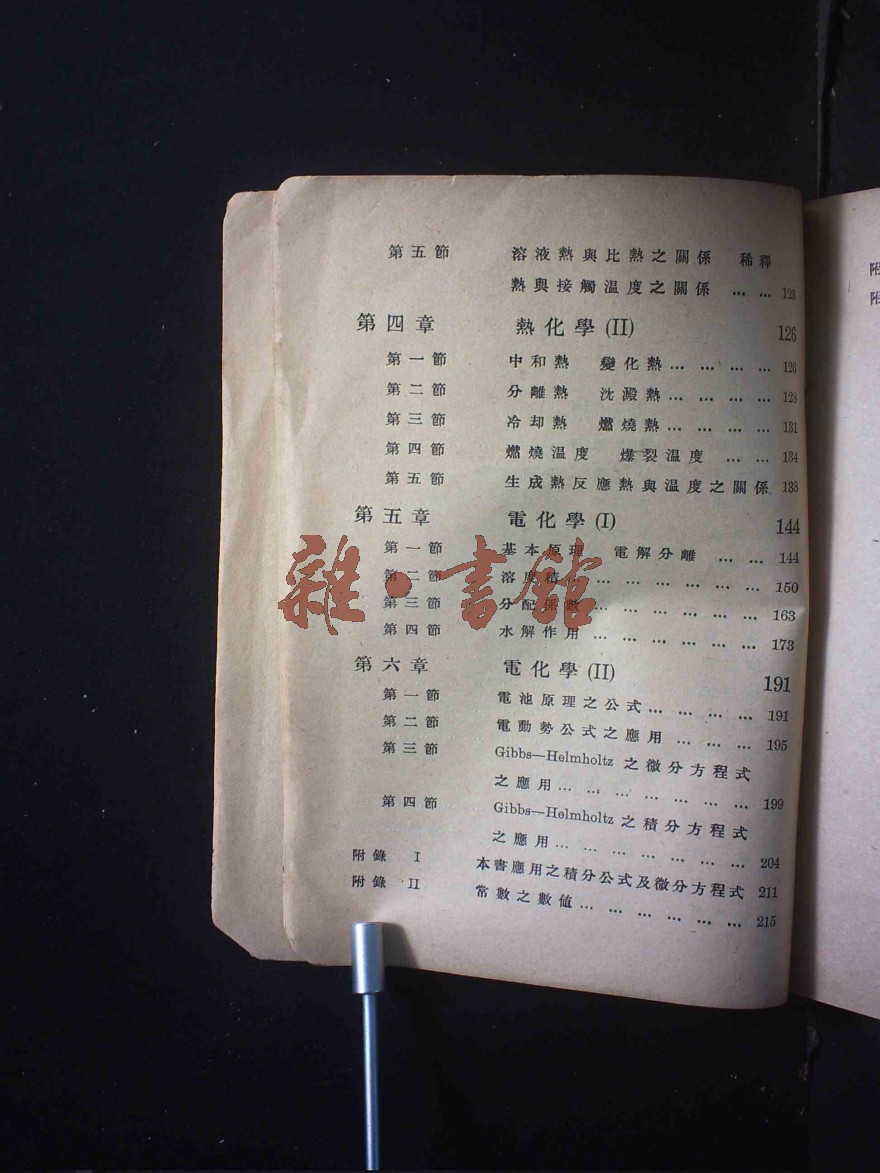 第五節 溶液熱與比熱之關係 稀釋
熱與接觸温度之關係 … … 123
第四章 熱化學(II) 126
第一節 中和熱 變化熱… … … … 126
第二節 分離熱 沈澱熱… … … … 128
第三節 冷却熱 燃燒熱… … … … 131
第四節 燃燒温度 爆裂温度 … … 134
第五節 生成熱反應熱與温度之關係 138
第五章 電化學(I) 144
第一節 基本原理 電解分離 … … 144
第二節 溶度積… … … … … … … 150
第三節 分配係數… … … … … … 163
第四節 水解作用 … … … … … … 173
雜·書館
第六章 電化學(II) 191
第一節 電池原理之公式… … … … 191
第二節 電動勢公式之應用 … … … 195
第三節 Gibbs—Helmholtz 之微分方程式
之應用… … … … … … … 199
第四節 Gibbs—Helmholtz 之積分方程式
之應用… … … … … … … 204
附錄 I 本書應用之積分公式及微分方程式 211
附錄 II 常數之數值… … … … … … 215
附
附